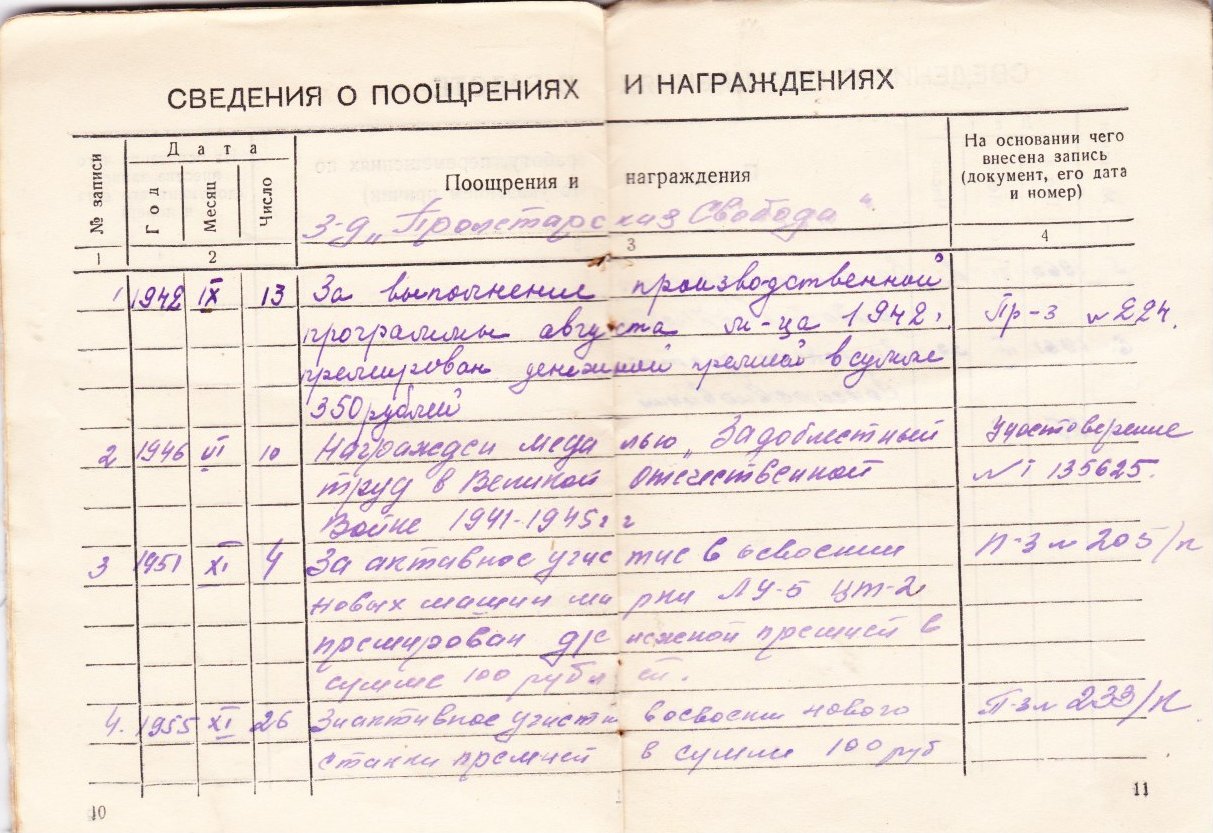 СВЕДЕНИЯ О ПООЩРЕНИЯХ И НАГРАЖДЕНИЯХ
№ записи
Дата
Год
Месяц
Число
Поощрения и награждения
На основании чего
внесена запись
(документ, его дата
и номер)
З-д „Пролетарская Свобода“.
1 2 3 4
1 1942 IX 13 За выполнение производственной
программы августа м-ца 1942 Пр-з № 224.
премирован денежной премией в сумме
350 рублей
2 1946 VI 10 Награжден медалью „За доблестный Удостоверение
труд в Великой Отечественной № 135625.
Войне 1941-1945 г г
3 1951 XI 4 За активное участие в освоении П-з № 205/к
новых машин марки ЛУ-5 ЦТ-2
премирован денежной премией в
сумме 100 рублей.
4. 1955 XI 26 За активное участи в освоени нового П-з № 233/к
станки премией в сумме 100 руб
10
11